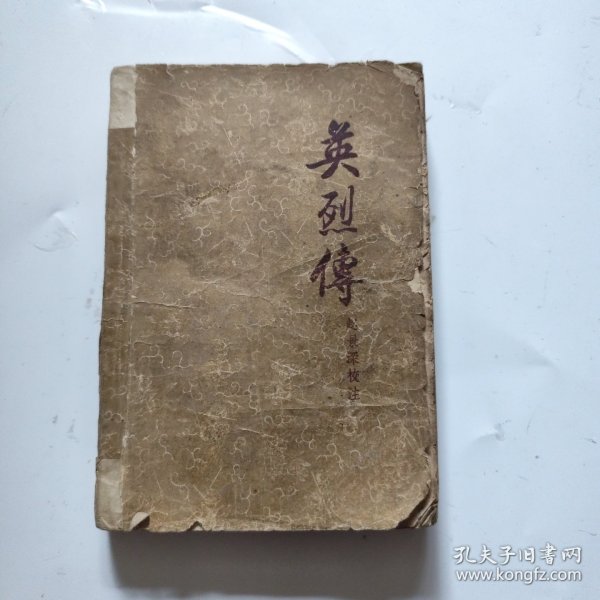 英烈傳
趙景深校注
孔夫子旧书网
www.kongfz.com